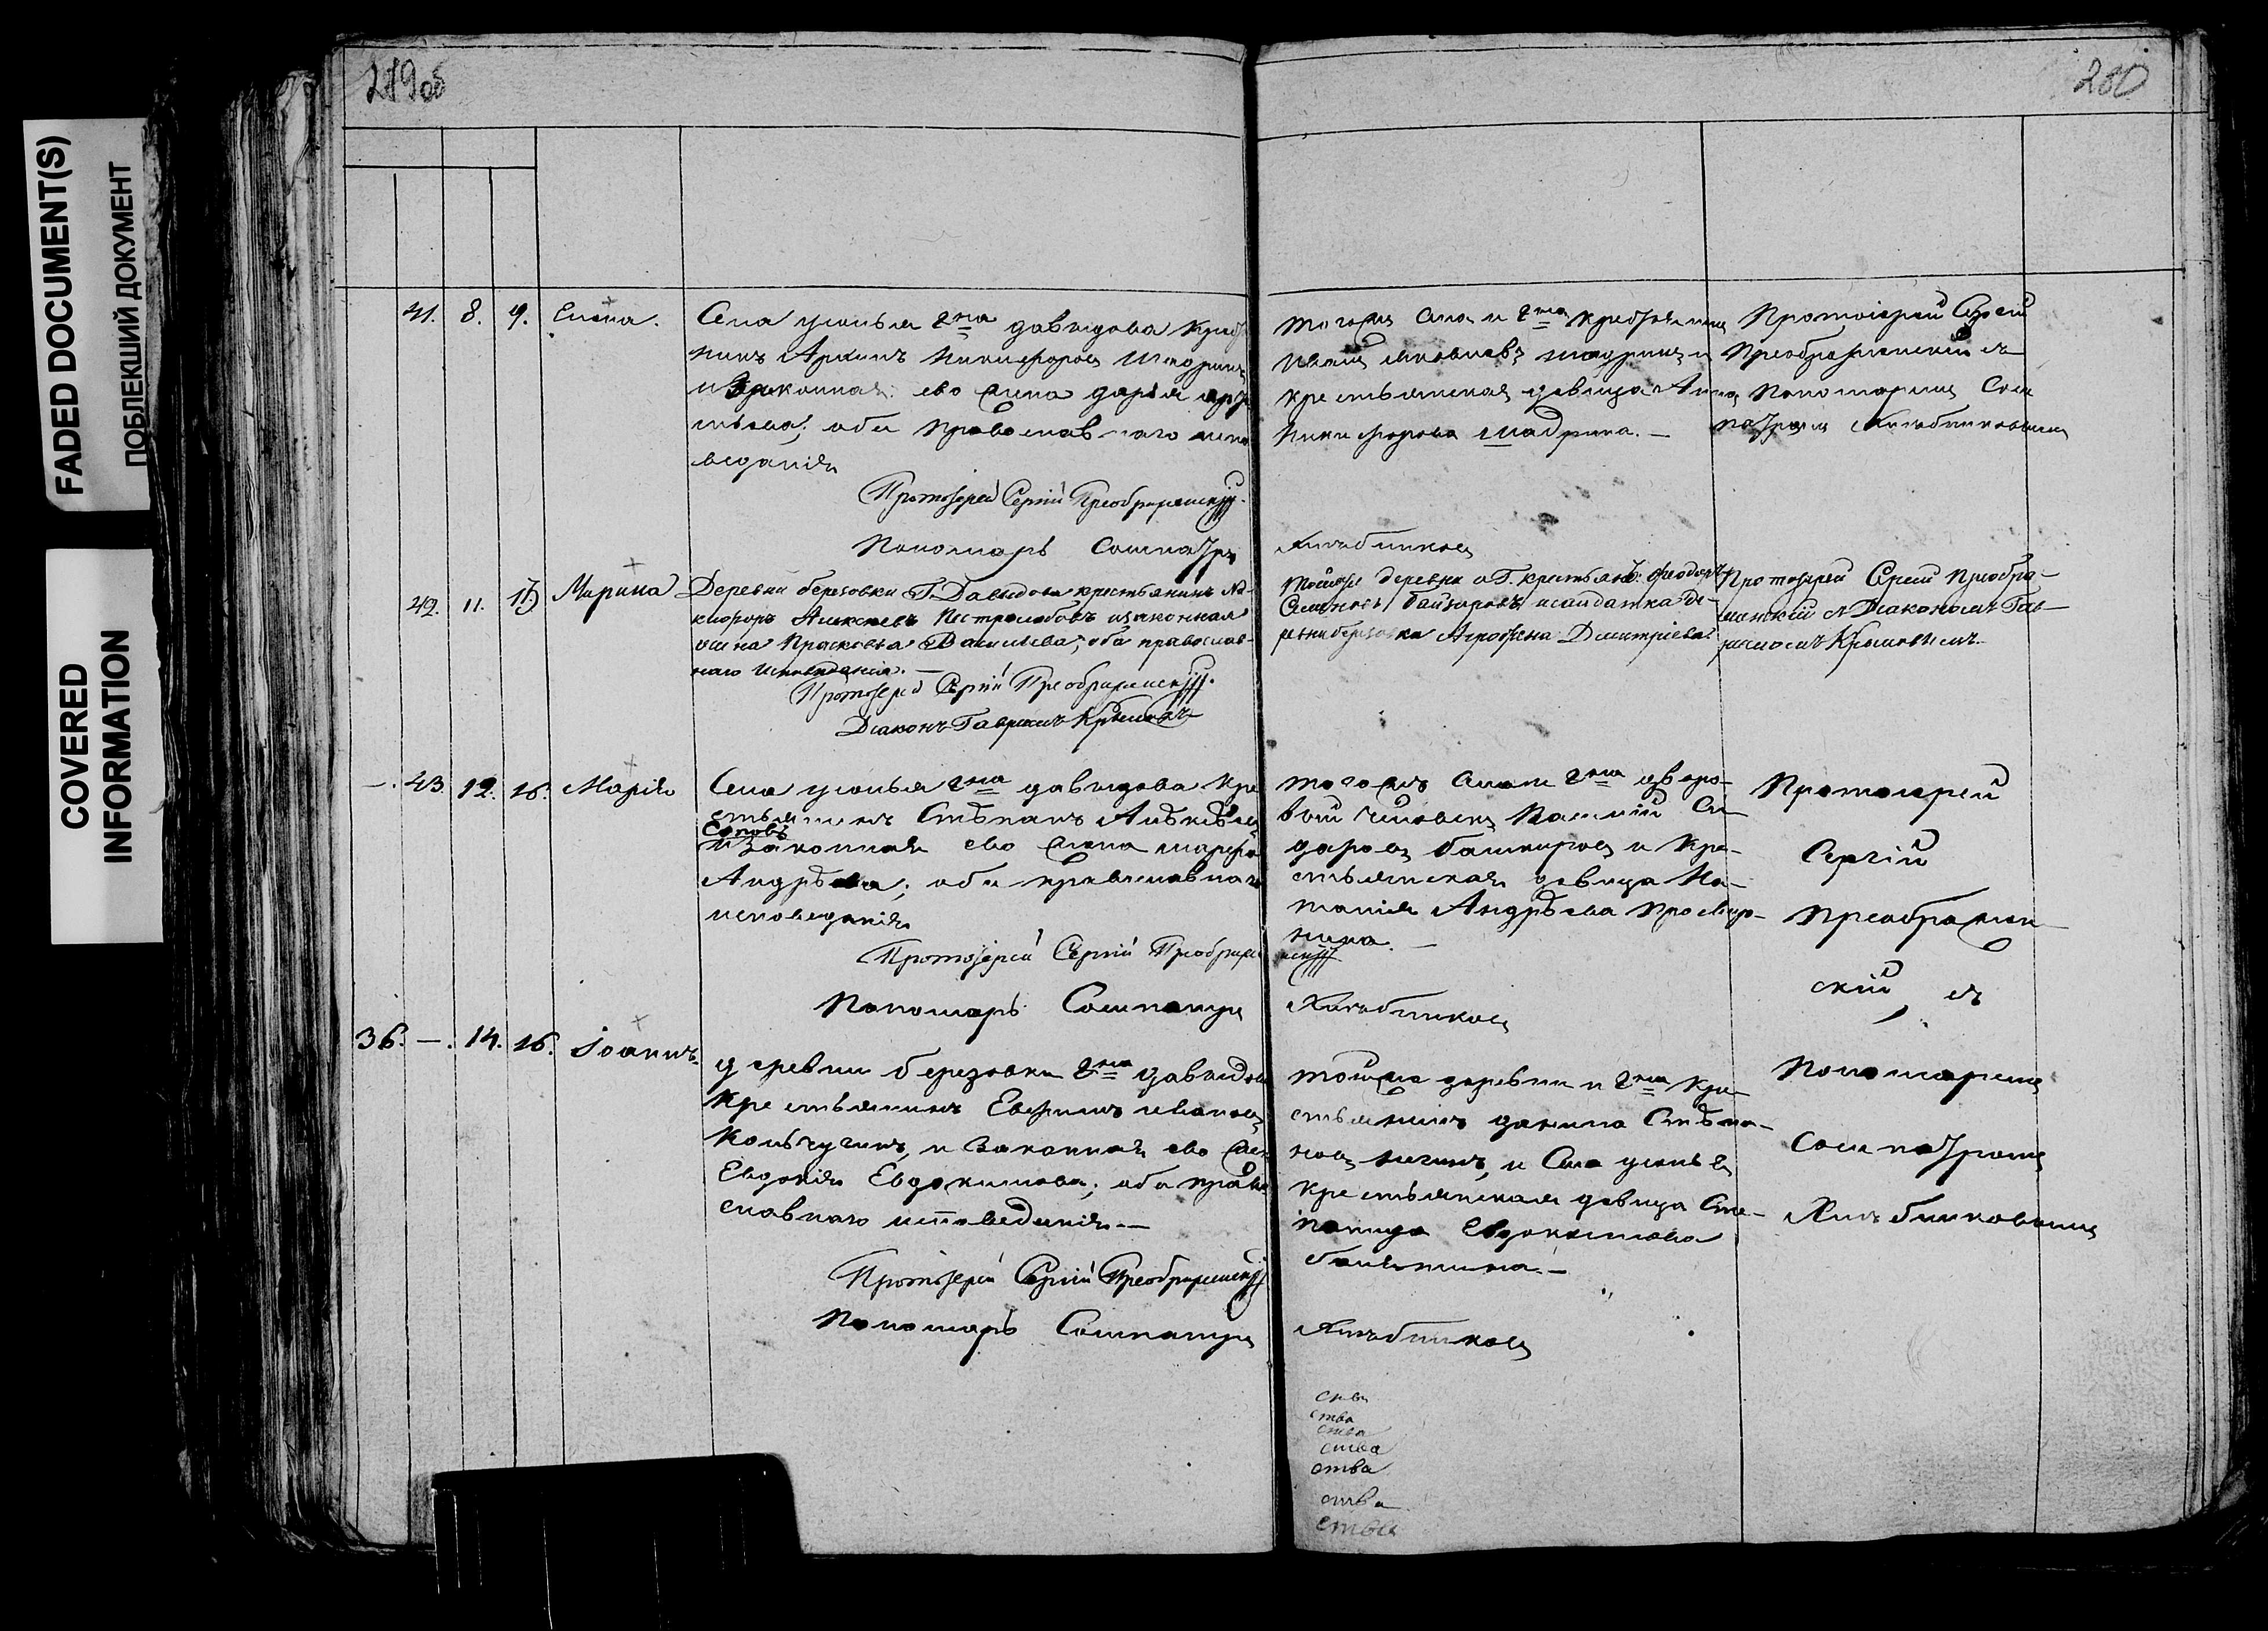 FADED DOCUMENT(S)
ПОБЛЕКШИЙ ДОКУМЕНТ
COVERED
INFORMATION
279об
280
41. 8. 9. Елена.
Села усолья гна давыдова
никъ Никифоровъ
и Законная ево жена дарья
оба православнаго испо
веданія
Протоіерей Сергій Преображенскій.
Пономарь Сосипатръ
того жъ села и гна
и
крестьянская девица Анна
Никифорова шадрина.—
Протоіерей Сергій
Преображенскій съ
Пономаремъ Соси
патромъ
Хлѣбниковымъ
Хлѣбниковъ
42. 11. 15 Марина
Деревни березовки Г. Давыдова крестьянинъ Ни-
кифоръ Алексеевъ Пестролюбовъ изаконная
жена Прасковья Васильева; оба православ-
наго исповѣданія.—
Протоіерей Сергій Преображенскій.
Діаконъ Гавріилъ Крыловъ
тойже деревни и Г. крестьян: Феодоръ
Семеновъ исолдатка де-
ревни березовки Агрофена Дмитріева.
Протоіерей Сергій Преобра-
женскій съ Діакономъ Гав-
ріиломъ Крыловымъ.
—. 43. 12. 16. Марія
Села усолья гна давыдова кре
стьянинъ Стѣпанъ
изаконная ево жена марфа
Андрѣева; оба православнаго
исповеданія
Протоіерей Сергій Преображе
нскій
Пономарь Сосипатръ
Хлѣбниковъ
того жъ села и гна дворо-
вый человекъ Василій Си-
доровъ башкировъ и кре-
стьянская девица На-
талія Андрѣева
нина.—
Протоіерей
Сергій
Преображен
скій, съ
Пономаремъ
Сосипатромъ
Хлѣбниковымъ
36. —. 14. 16. Іоаннъ.
деревни березовки гна давыдова
крестьянинъ Евфимъ ивановъ
Кольчугинъ, и Законная ево жена
Евдокія Евдокимова; оба право
славнаго исповеданія.—
Протоіерей Сергій Преображенскій
Пономарь Сосипатръ
Хлѣбниковъ
тойже деревни и гна кре-
стьянинъ данила Стѣпа-
новъ и Села усолья
крестьянская девица Сте-
панида Евдокимова
ства
ства
ства
ства
ства
ства